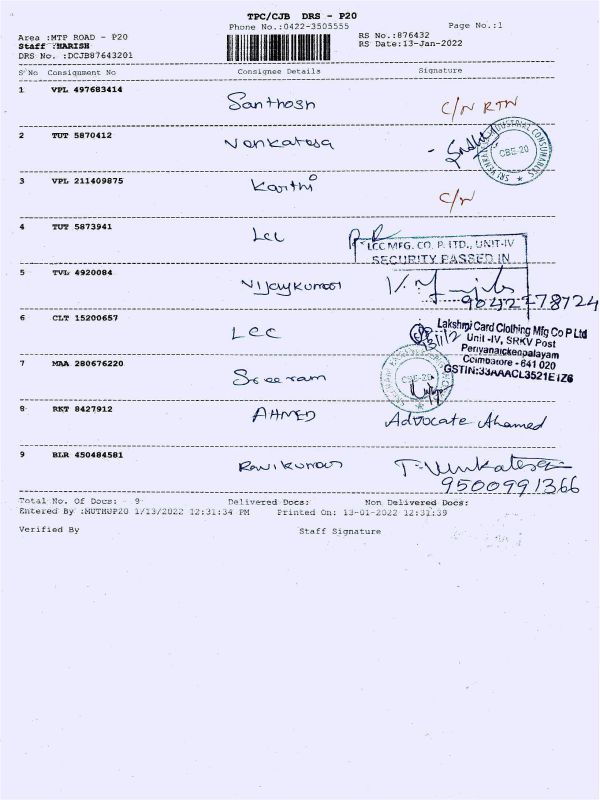 TPC/CJB DRS - P20
Phone No.:0422-3505555 Page No.:1
Area :MTP ROAD - P20 RS No.:876432
Staff :HARISH RS Date:13-Jan-2022
DRS No. :DCJB87643201
S'No Consignment No Consignee Details Signature
1 VPL 497683414 Santhosh C/N RTN
2 TUT 5870412 Venkatesa
SRI VENKA INDUSTRIAL CONSUMABLES CBE-20
3 VPL 211409875 Karthi C/N
4 TUT 5873941 LCC
LCC MFG. CO. P. LTD., UNIT-IV
SECURITY PASSED IN
5 TVL 4920084 Vijaykumar
9842278724
6 CLT 15200657 LCC 13/1/22
Lakshmi Card Clothing Mfg Co P Ltd
Unit -IV, SRKV Post
Periyanaickenpalayam
Coimbatore - 641 020
GSTIN:33AAACL3521E1Z6
7 MAA 280676220 Sreeram
CBE-20
8 RKT 8427912 AHMED Advocate Ahamed
9 BLR 450484581 Ravikumar T. Venkatesa
9500991366
Total No. Of Docs: - 9- Delivered Docs: Non Delivered Docs:
Entered By :MUTHUP20 1/13/2022 12:31:34 PM Printed On: 13-01-2022 12:31:39
Verified By Staff Signature